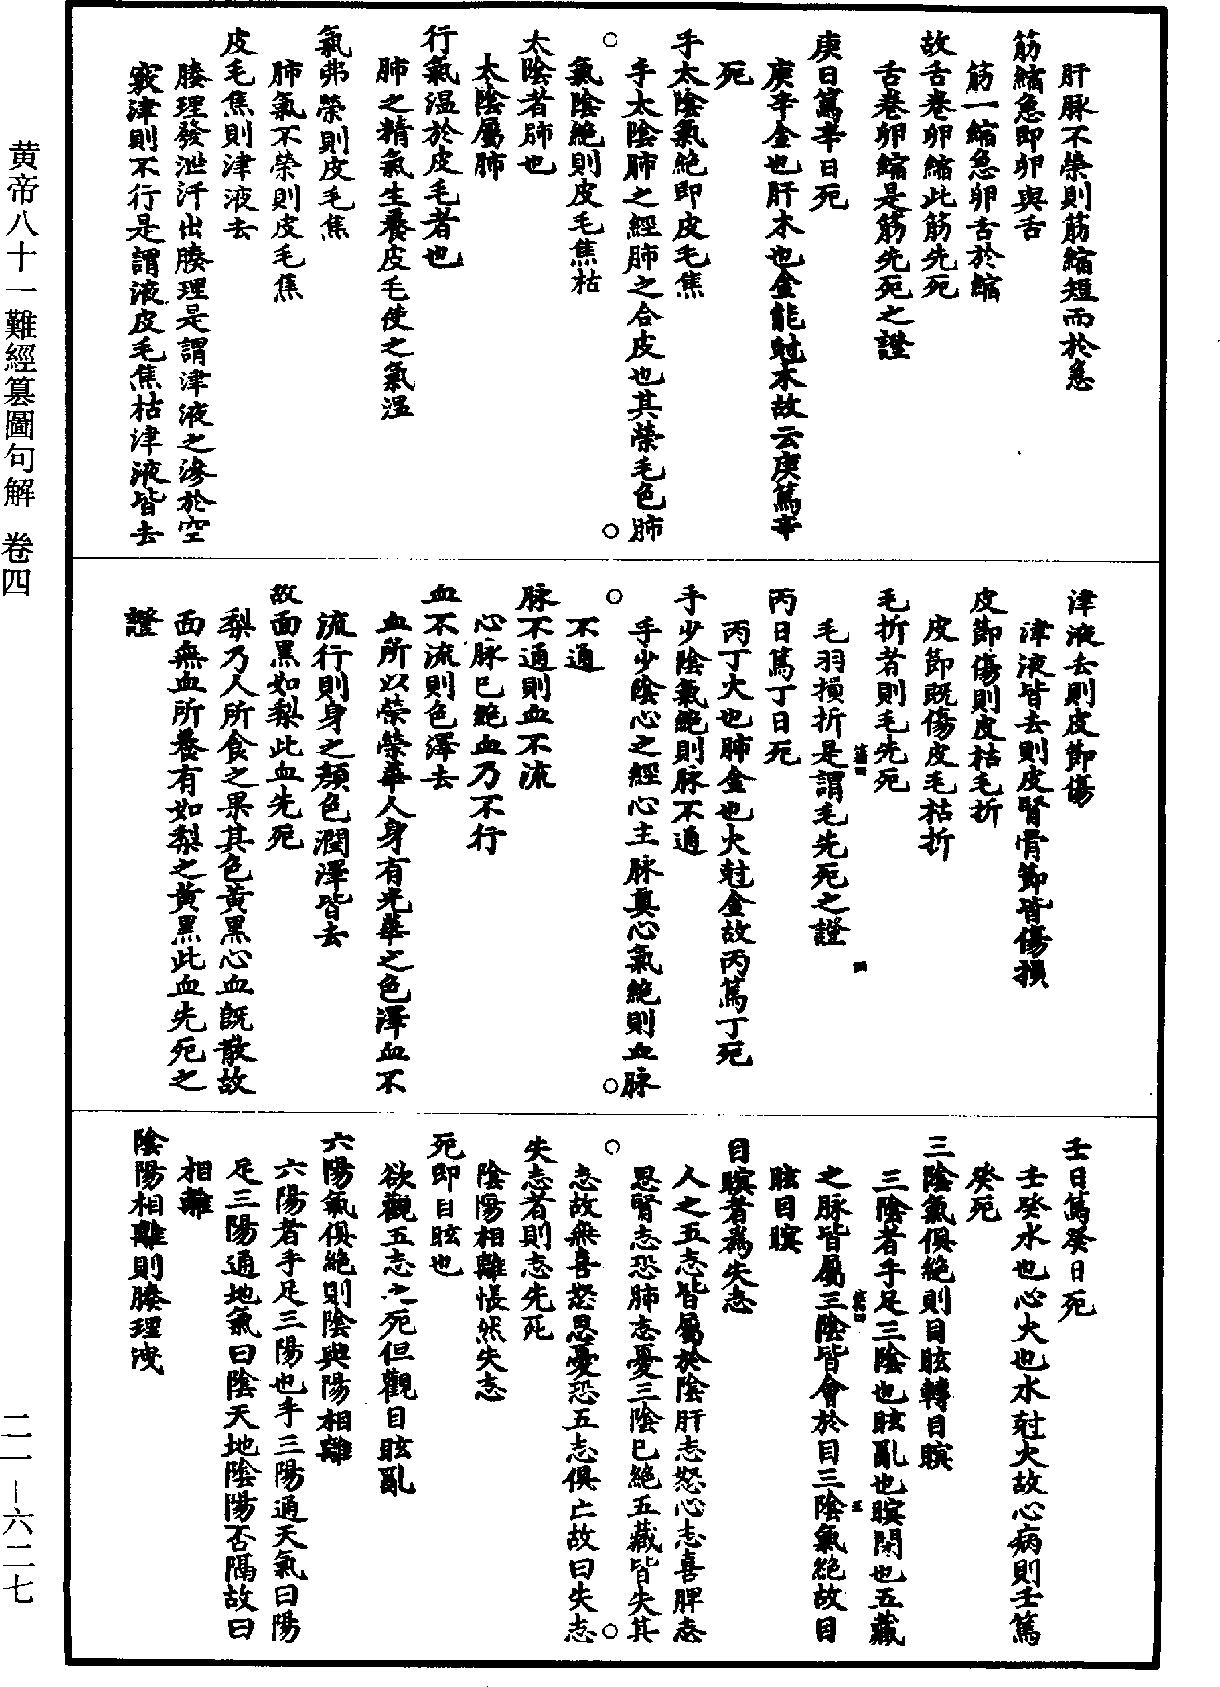 肝脉不榮則筋縮短而於急
筋縮急即卵與舌
筋一縮急卵舌於縮
故舌卷卵縮此筋先死
舌卷卵縮是筋先死之證
庚日篤辛日死
庚辛金也肝木也金能尅木故云庚篤辛
死
手太陰氣絶即皮毛焦
手太陰肺之經肺之合皮也其榮毛色肺
氣陰絶則皮毛焦枯
太陰者肺也
太陰屬肺
行氣温於皮毛者也
肺之精氣生養皮毛使之氣温
氣弗榮則皮毛焦
肺氣不榮則皮毛焦
皮毛焦則津液去
腠理發泄汗出腠理是謂津液之滲於空
竅津則不行是謂液皮毛焦枯津液皆去
津液去則皮節傷
津液皆去則皮腎骨節皆傷損
皮節傷則皮枯毛折
皮節既傷皮毛枯折
毛折者則毛先死
毛羽損折是謂毛先死之證
丙日篤丁日死
丙丁火也肺金也火尅金故丙篤丁死
手少陰氣絶則脉不通
手少陰心之經心主脉真心氣絶則血脉
不通
脉不通則血不流
心脉已絶血乃不行
血不流則色澤去
血所以榮榮華人身有光華之色澤血不
流行則身之顏色潤澤皆去
故面黑如梨此血先死
梨乃人所食之果其色黄黑心血既散故
面無血所養有如梨之黄黑此血先死之
證
壬日篤癸日死
壬癸水也心火也水尅火故心病則壬篤
癸死
三陰氣俱絶則目眩轉目瞑
三陰者手足三陰也眩亂也瞑閉也五藏
之脉皆屬三陰皆會於目三陰氣絶故目
眩目瞑
目瞑者為失志
人之五志皆屬於陰肝志怒心志喜脾志
思腎志恐肺志憂三陰已絶五藏皆失其
志故無喜怒思憂恐五志俱亡故曰失志
失志者則志先死
陰陽相離悵然失志
死即目眩也
欲觀五志之死但觀目眩亂
六陽氣俱絶則陰與陽相離
六陽者手足三陽也手三陽通天氣曰陽
足三陽通地氣曰陰天地陰陽否隔故曰
相離
陰陽相離則腠理洩
黄帝八十一難經纂圖句解 卷四
二一－六二七